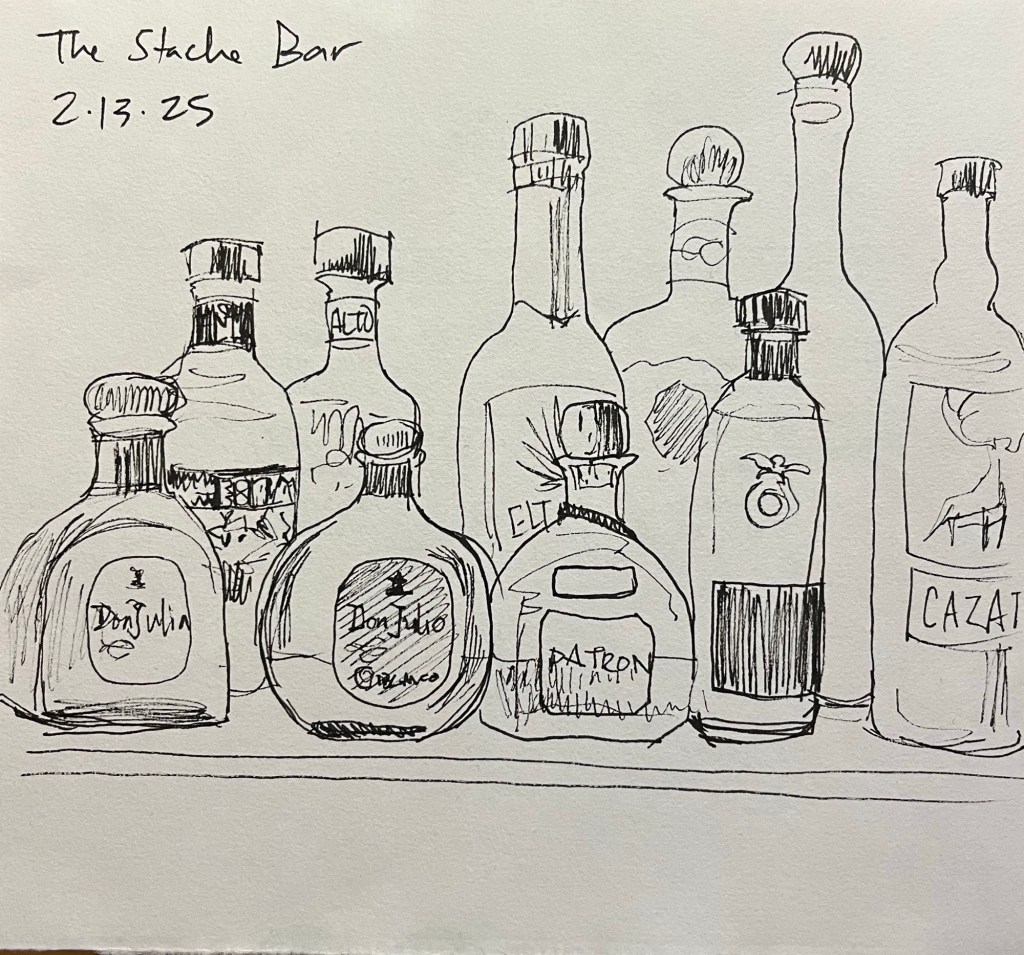 The Stache Bar
2.13.25
ALTO
ELT
Don Julia
Don Julio
BLANCO
PATRON
CAZAT